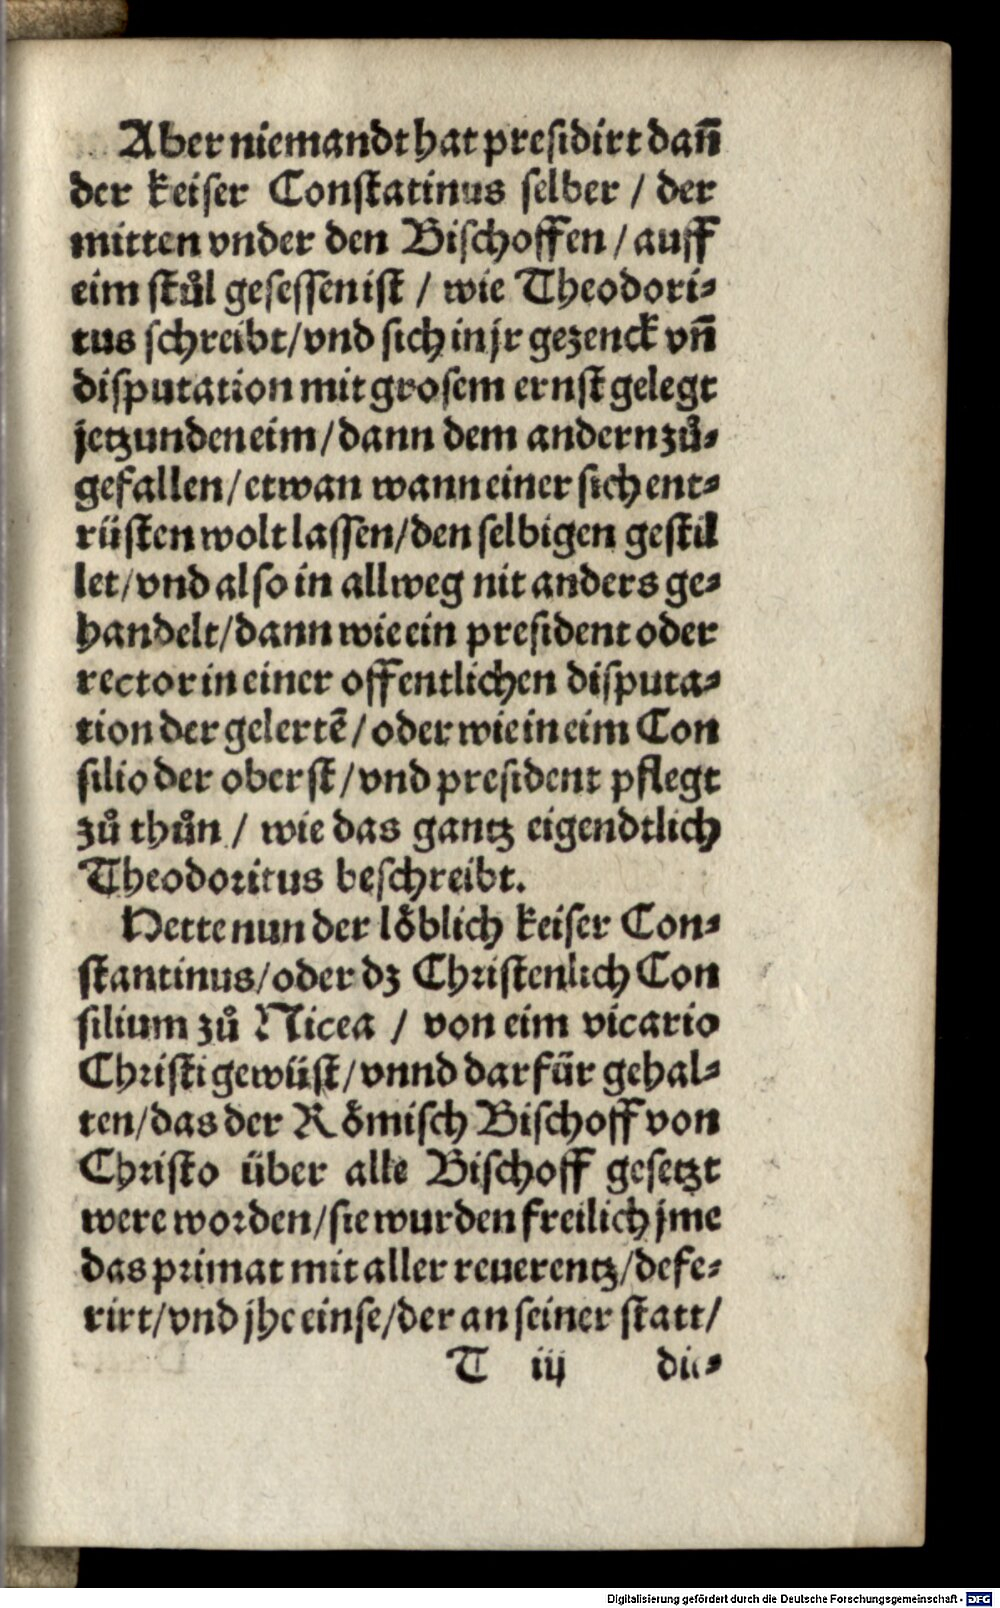 Aber niemandt hat presidirt dañ
der keiser Constatinus selber / der
mitten vnder den Bischoffen / auff
eim stůl gesessen ist / wie Theodori⸗
tus schreibt / vnd sich in jr gezenck vñ
disputation mit grosem ernst gelegt
jetzunden eim / dann dem andern zů⸗
gefallen / etwan wann einer sich ent⸗
rüsten wolt lassen / den selbigen gestil
let / vnd also in allweg nit anders ge⸗
handelt / dann wie ein president oder
rector in einer offentlichen disputa⸗
tion der gelertẽ / oder wie in eim Con
silio der oberst / vnd president pflegt
zů thůn / wie das gantz eigendtlich
Theodoritus beschreibt.
Hette nun der löblich keiser Con⸗
stantinus / oder dz Christenlich Con
silium zů Nicea / von eim vicario
Christi gewüst / vnnd darfür gehal⸗
ten / das der Römisch Bischoff von
Christo über alle Bischoff gesetzt
were worden / sie wurden freilich jme
das primat mit aller reuerentz / defe⸗
rirt / vnd jhe einse / der an seiner statt /
T iij
Digitalisierung gefördert durch die Deutsche Forschungsgemeinschaft - DFG